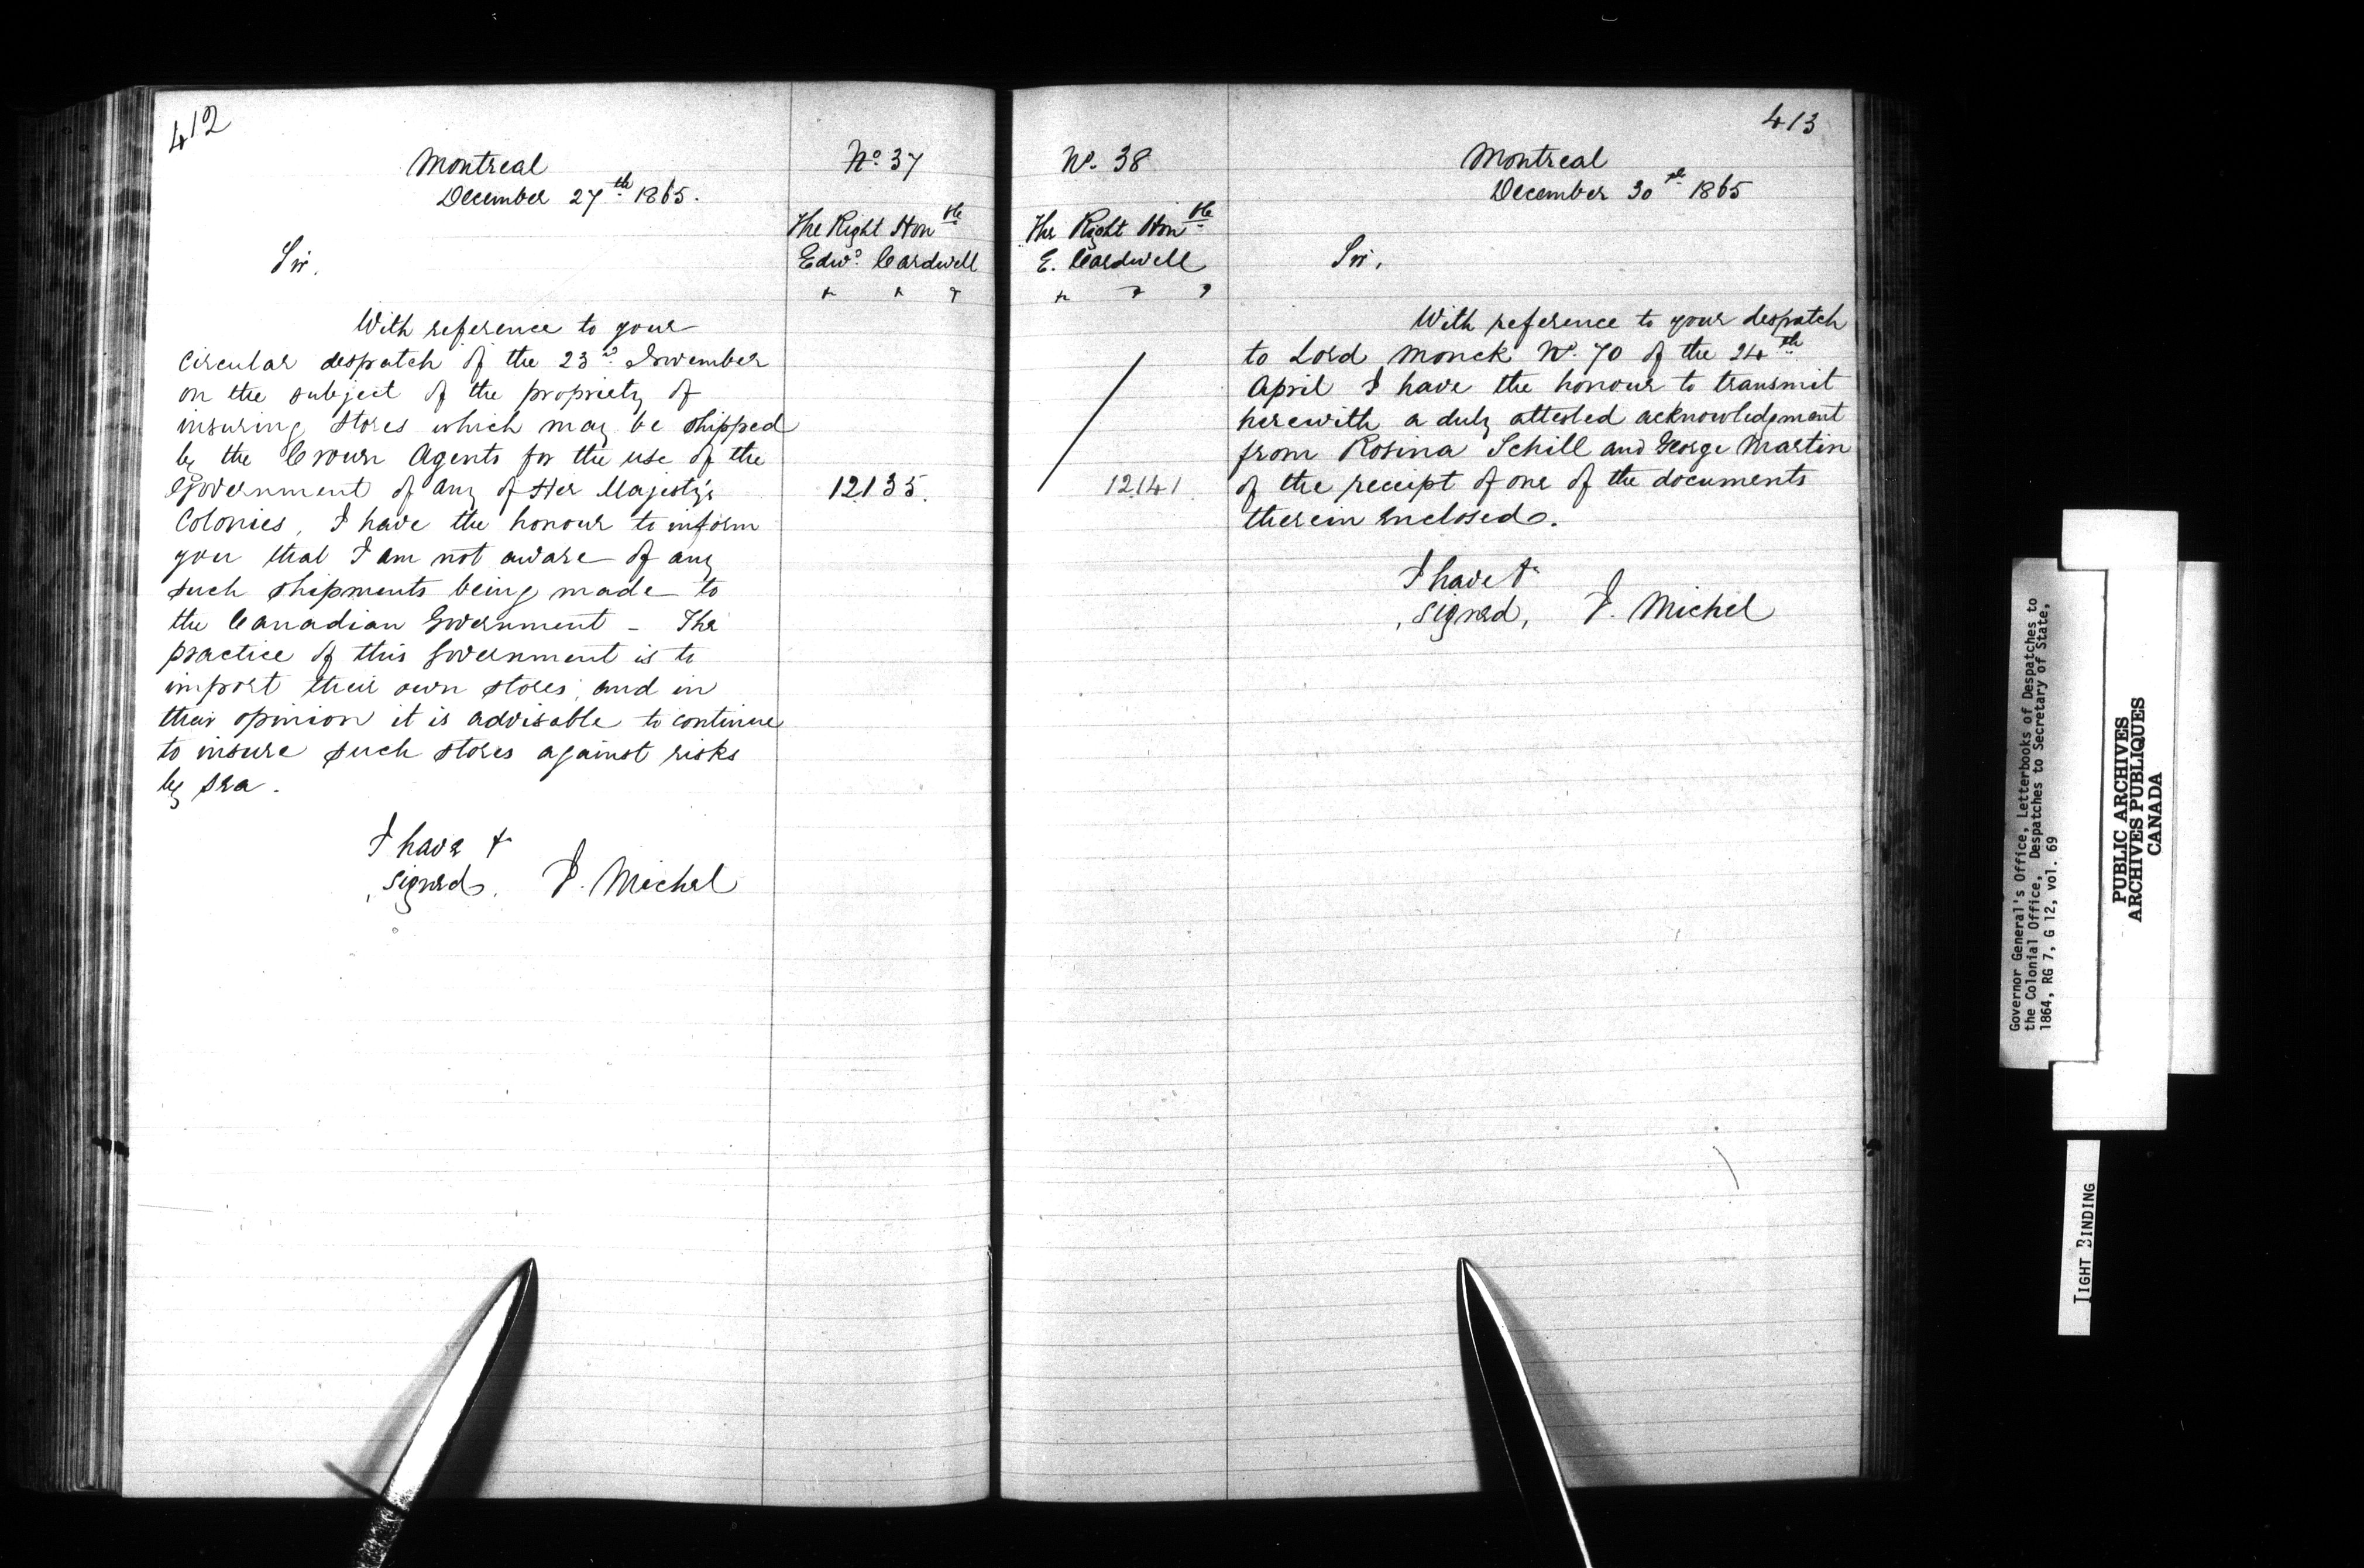 412
Montreal
December 27th 1865.
No. 37
The Right Honble
Edwd. Cardwell
Sir,
With reference to your
Circular despatch of the 23rd November
on the subject of the propriety of
insuring stores which may be shipped
by the Crown Agents for the use of the
Government of any of Her Majesty's
Colonies, I have the honour to inform
you that I am not aware of any
such shipments being made to
the Canadian Government - The
practice of this Government is to
import their own stores, and in
their opinion it is advisable to continue
to insure such stores against risks
by sea.
12135.
I have &
signed. J. Michel
413
No. 38
The Right Honble
E. Cardwell
Montreal
December 30th 1865
Sir,
With reference to your despatch
to Lord Monck No. 70 of the 24th
April I have the honour to transmit
herewith a duly attested acknowledgment
from Rosina Schill and George Martin
of the receipt of one of the documents
therein enclosed.
12141
I have &
signed, J. Michel
Governor General's Office, Letterbooks of Despatches to
the Colonial Office, Despatches to Secretary of State,
1864, RG 7, G 12, vol. 69
PUBLIC ARCHIVES
ARCHIVES PUBLIQUES
CANADA
TIGHT BINDING